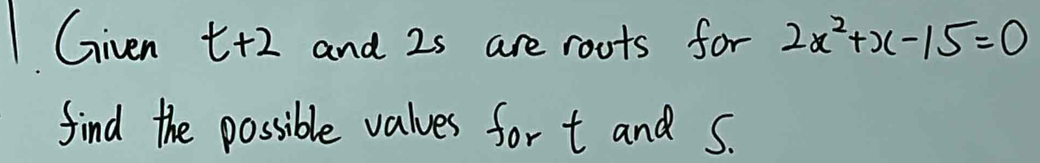 1. Given t+2 and 2s are roots for 2x²+x-15=0
find the possible values for t and s.